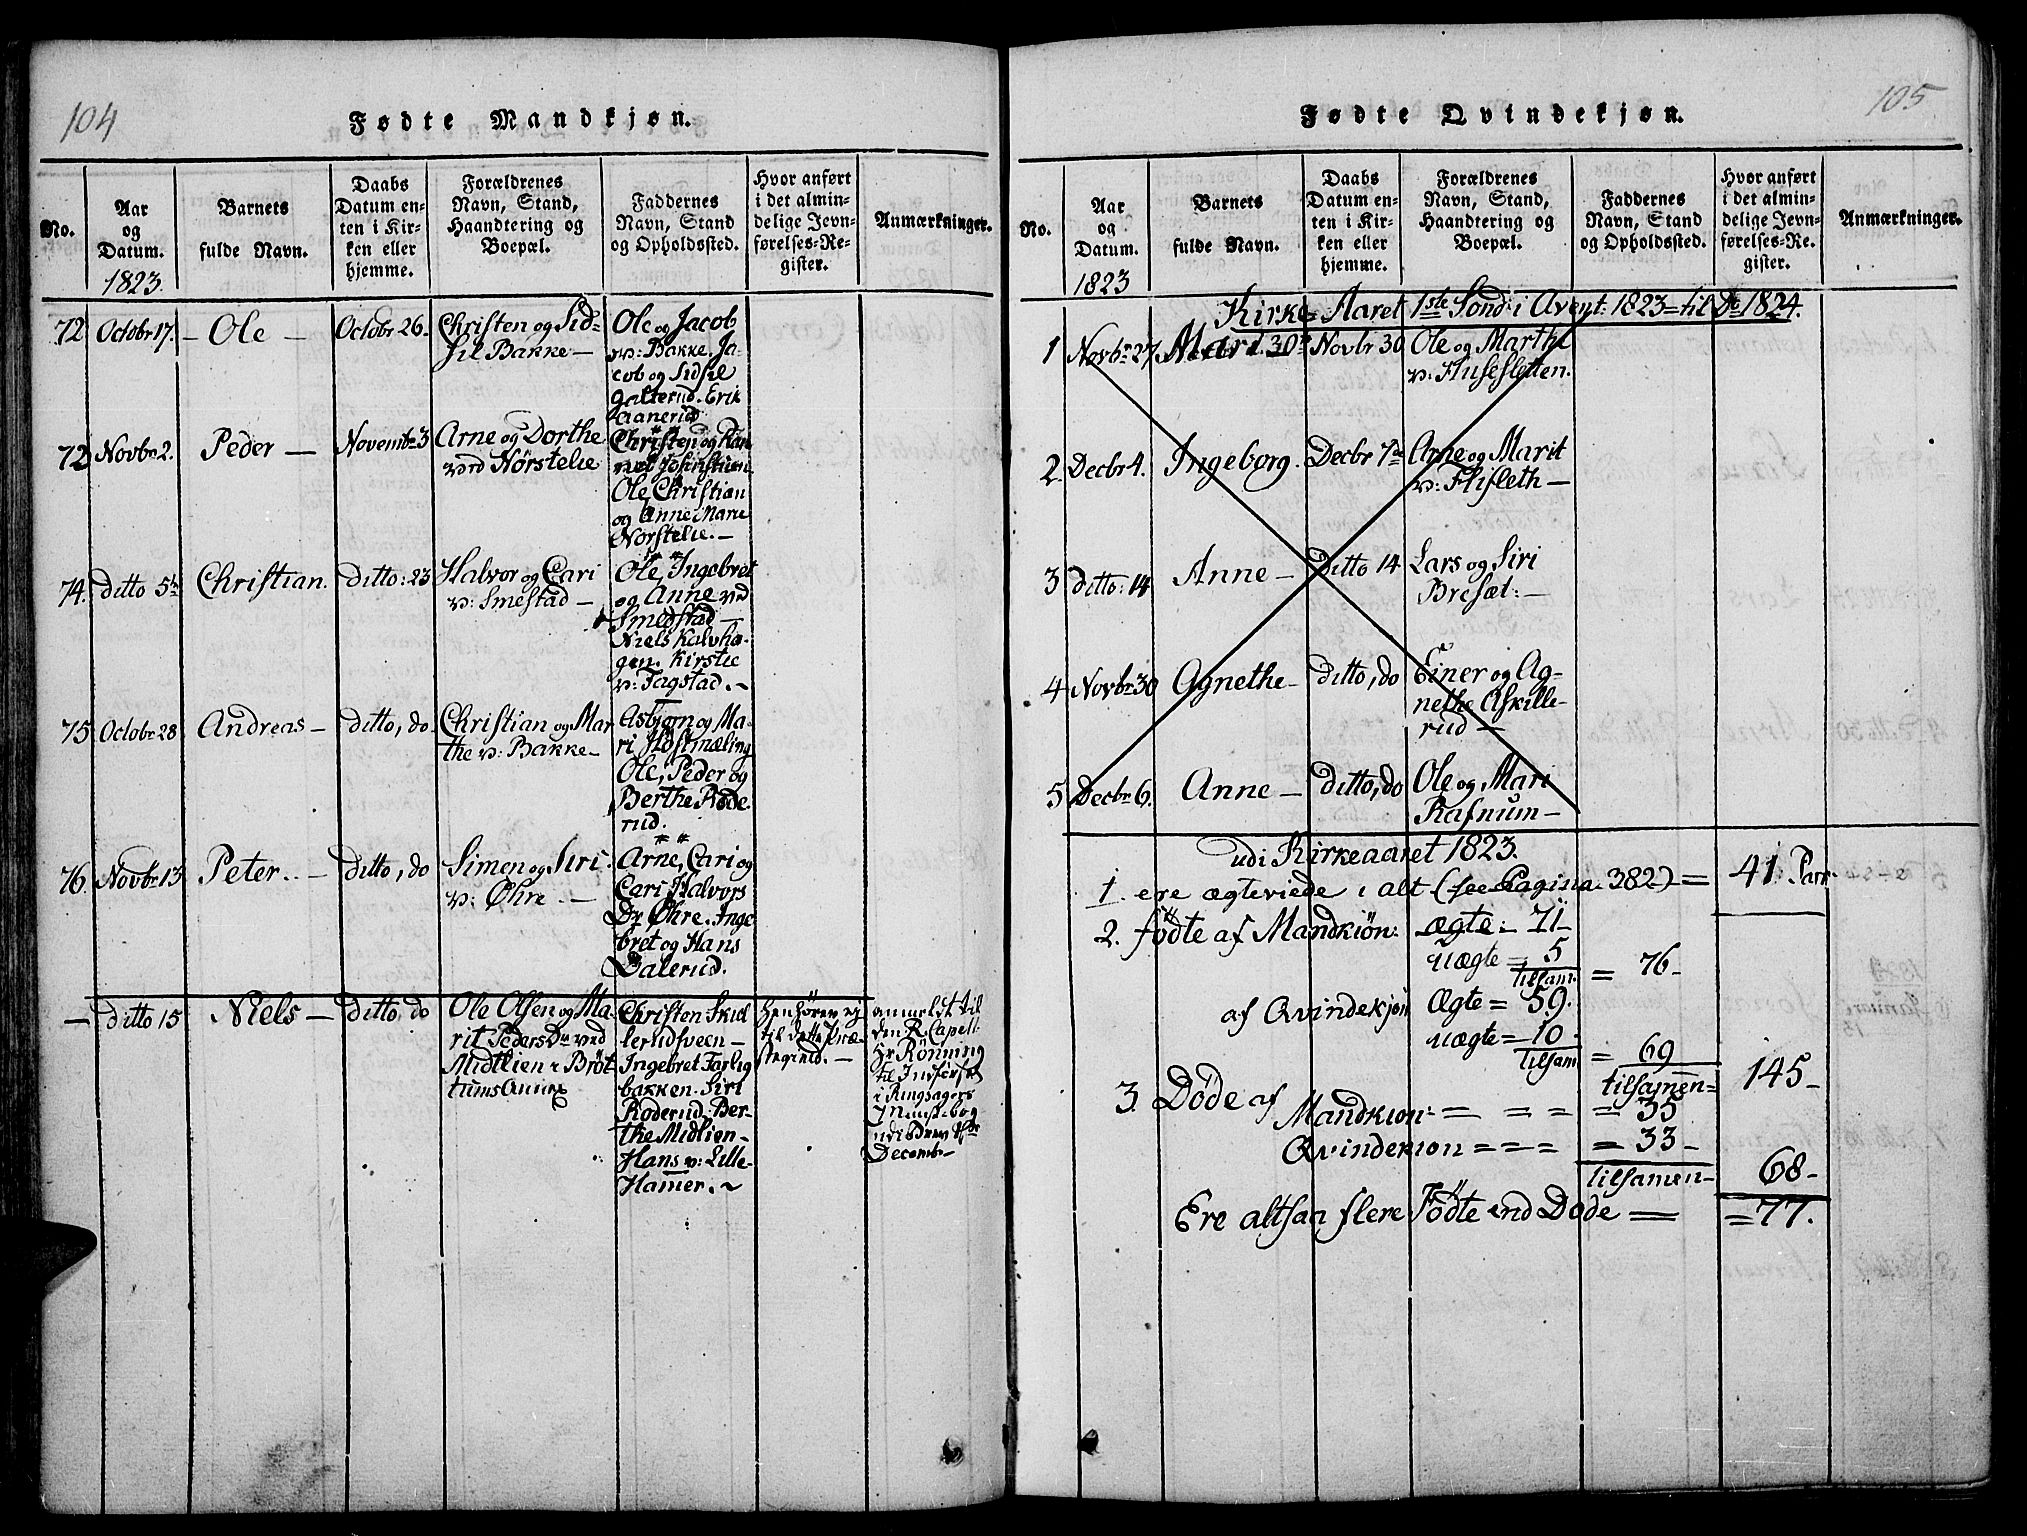 104
Fødte Mandkjøn.
No.
Aar
og
Datum.
1823.
Barnets
fulde Navn.
Daabs
Datum en-
ten i Kir-
ken eller
hjemme.
Forældrenes
Navn, Stand,
Haandtering og
Boepæl.
Faddernes
Navn, Stand
og Opholdssted.
Hvor anført
i det almin-
delige Jevn-
førelses-Re-
gister.
Anmærkninger.
72 Octobr 17. – Ole – Octobr 26–
Christen og Sid-
sil Bakke –
Ole og Jacob
v: Bakke. Ja-
cob og Sidsil
Galterud. Erik
Aanerud
72 Novbr 2. Peder – Novembr 3
Arne og Dorthe
ved Nørstelie
Christen og
Ole, Christian
og Anne Marie
Nørstelie. –
74. ditto 5te Christian. ditto: 23
Halvor og Cari
v: Smestad –
Ole, Ingebret
og Anne ved
Smedstad –
Niels Kalvha-
gen. Kirstie
v: Fagstad. –
75 Octobr 28 Andreas – ditto, do
Christian og Mar
the v: Bakke –
Asbjørn og Ma-
ri Høstmæling
Ole, Peder og
Berthe Røde-
rud.
76 Novbr 13 Peter. – ditto, do
Simen og Siri
v: Øhre. –
Arne, Cari og
Cari Halvors
Dr Øhre. Inge
bret og Hans
Dalerud.
– ditto 15 Niels – ditto, do
Ole Olsen og Ma-
rit Peders Dr ved
Midtlien i Brøt
tums Annex
Christen Skid
lerudsveen –
Ingebret Farlig
bakken. Siri
Roderud. Ber-
the Midlien –
Hans v: Lille-
Hamer. ~
Henhører ej
til dette Præ-
stegield. –
anmeldt til
den R. Capell:
Hr Rønning
til Indførsel
i Ringsagers
Minist. bog
udi Brev 1ste
Decemb –
105
Fødte Qvindekjøn.
No.
Aar
og
Datum.
1823
Barnets
fulde Navn.
Daabs
Datum en-
ten i Kir-
ken eller
hjemme.
Forældrenes
Navn, Stand,
Haandtering og
Boepæl.
Faddernes
Navn, Stand
og Opholdssted.
Hvor anført
i det almin-
delige Jevn-
førelses-Re-
gister.
Anmærkninger.
Kirke-Aaret 1ste Sønd: i Avent: 1823 – til do 1824.
1 Novbr 27 Mari. Novbr 30
Ole og Marthe
v: Husesletten.
2. Decbr 4. Ingeborg. Decbr 7de
Arne og Marit
v: Flisleth –
3 ditto: 14 Anne – ditto 14
Lars og Siri
Bresæt: –
4 Novbr 30 Agnethe – ditto, do
Einer og Ag-
nethe Askille-
rud –
5 Decbr 6. Anne – ditto, do
Ole og Mari
Rafnum –
udi Kirkeaaret 1823.
1. ere ægteviede i alt (see Pagina 382) = 41. Parr
2. Fødte af Mandkiøn: ægte: 71–
uægte = 5
tilsam: = 76–
af Qvindekjøn Ægte = 59.
uægte = 10–
tilsam = 69
tilsamen = 145–
3. Døde af
Mandkiøn = = = = 35
Qvindekiøn = = = = 33–
tilsamen – 68–
Ere altsaa flere Fødte end Døde = = 77.